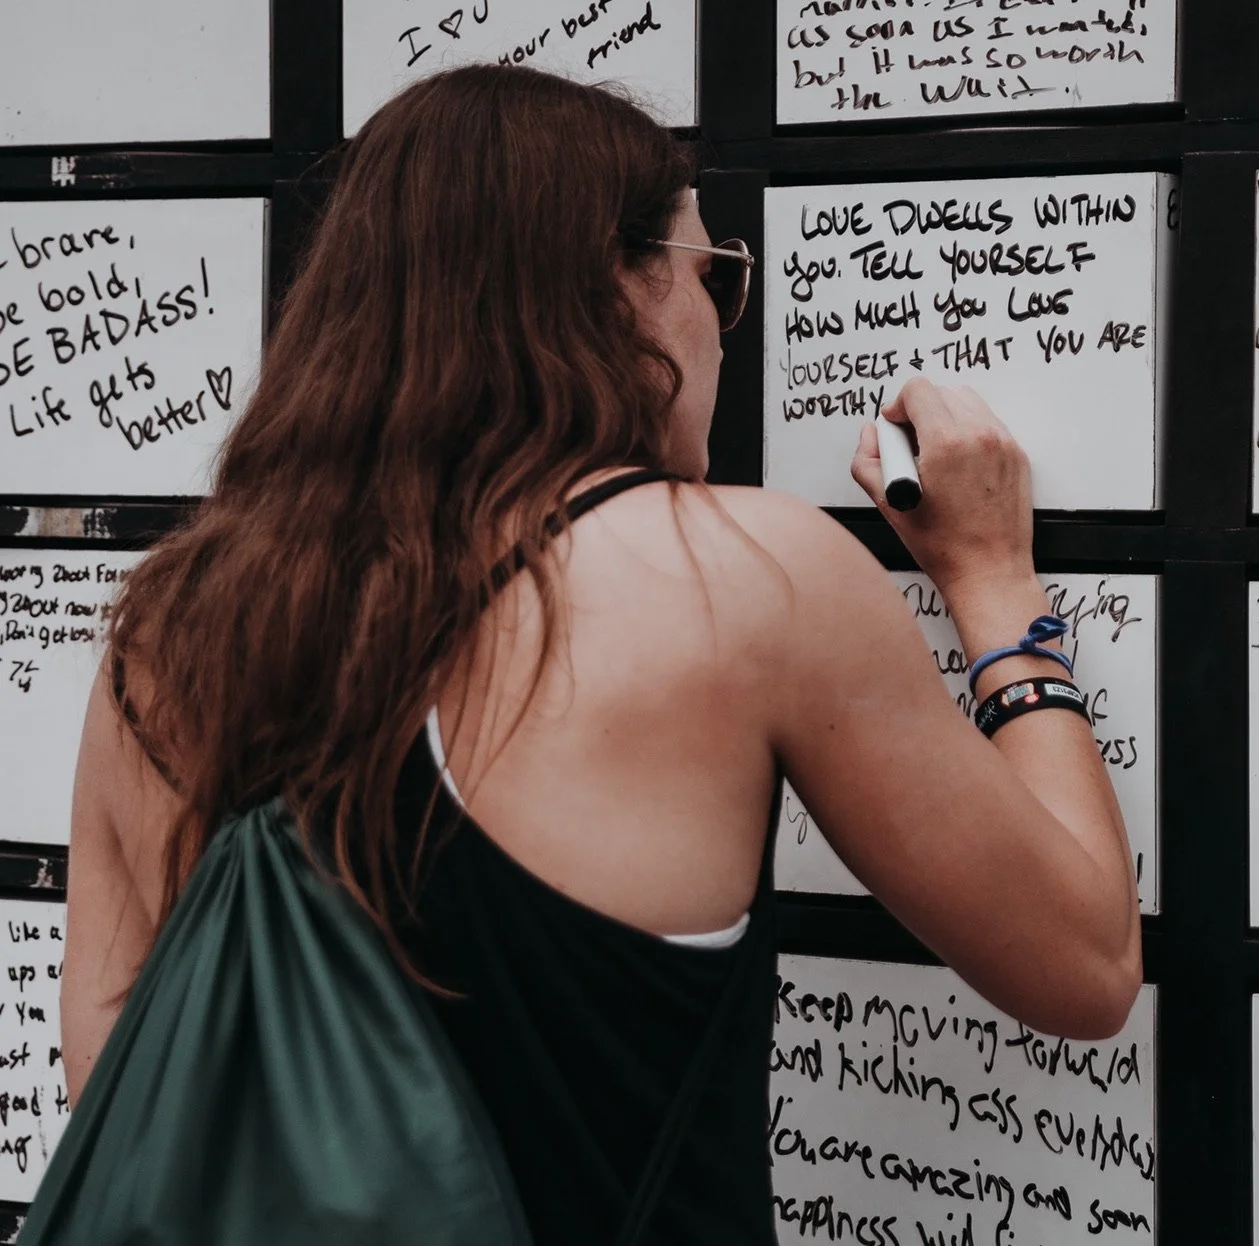 I ♡ U
your best
friend
as soon as I wanted,
but it was so worth
the wait.
brave,
bold,
BE BADASS!
Life gets
better ♡
LOVE DWELLS WITHIN
you. TELL YOURSELF
HOW MUCH you LOVE
YOURSELF + THAT YOU ARE
WORTHY
about
about now
Don't get lost
ying
ess
!
like a
ups
You
Keep moving forward
and kicking ass everyday
You are amazing and soon
happiness will